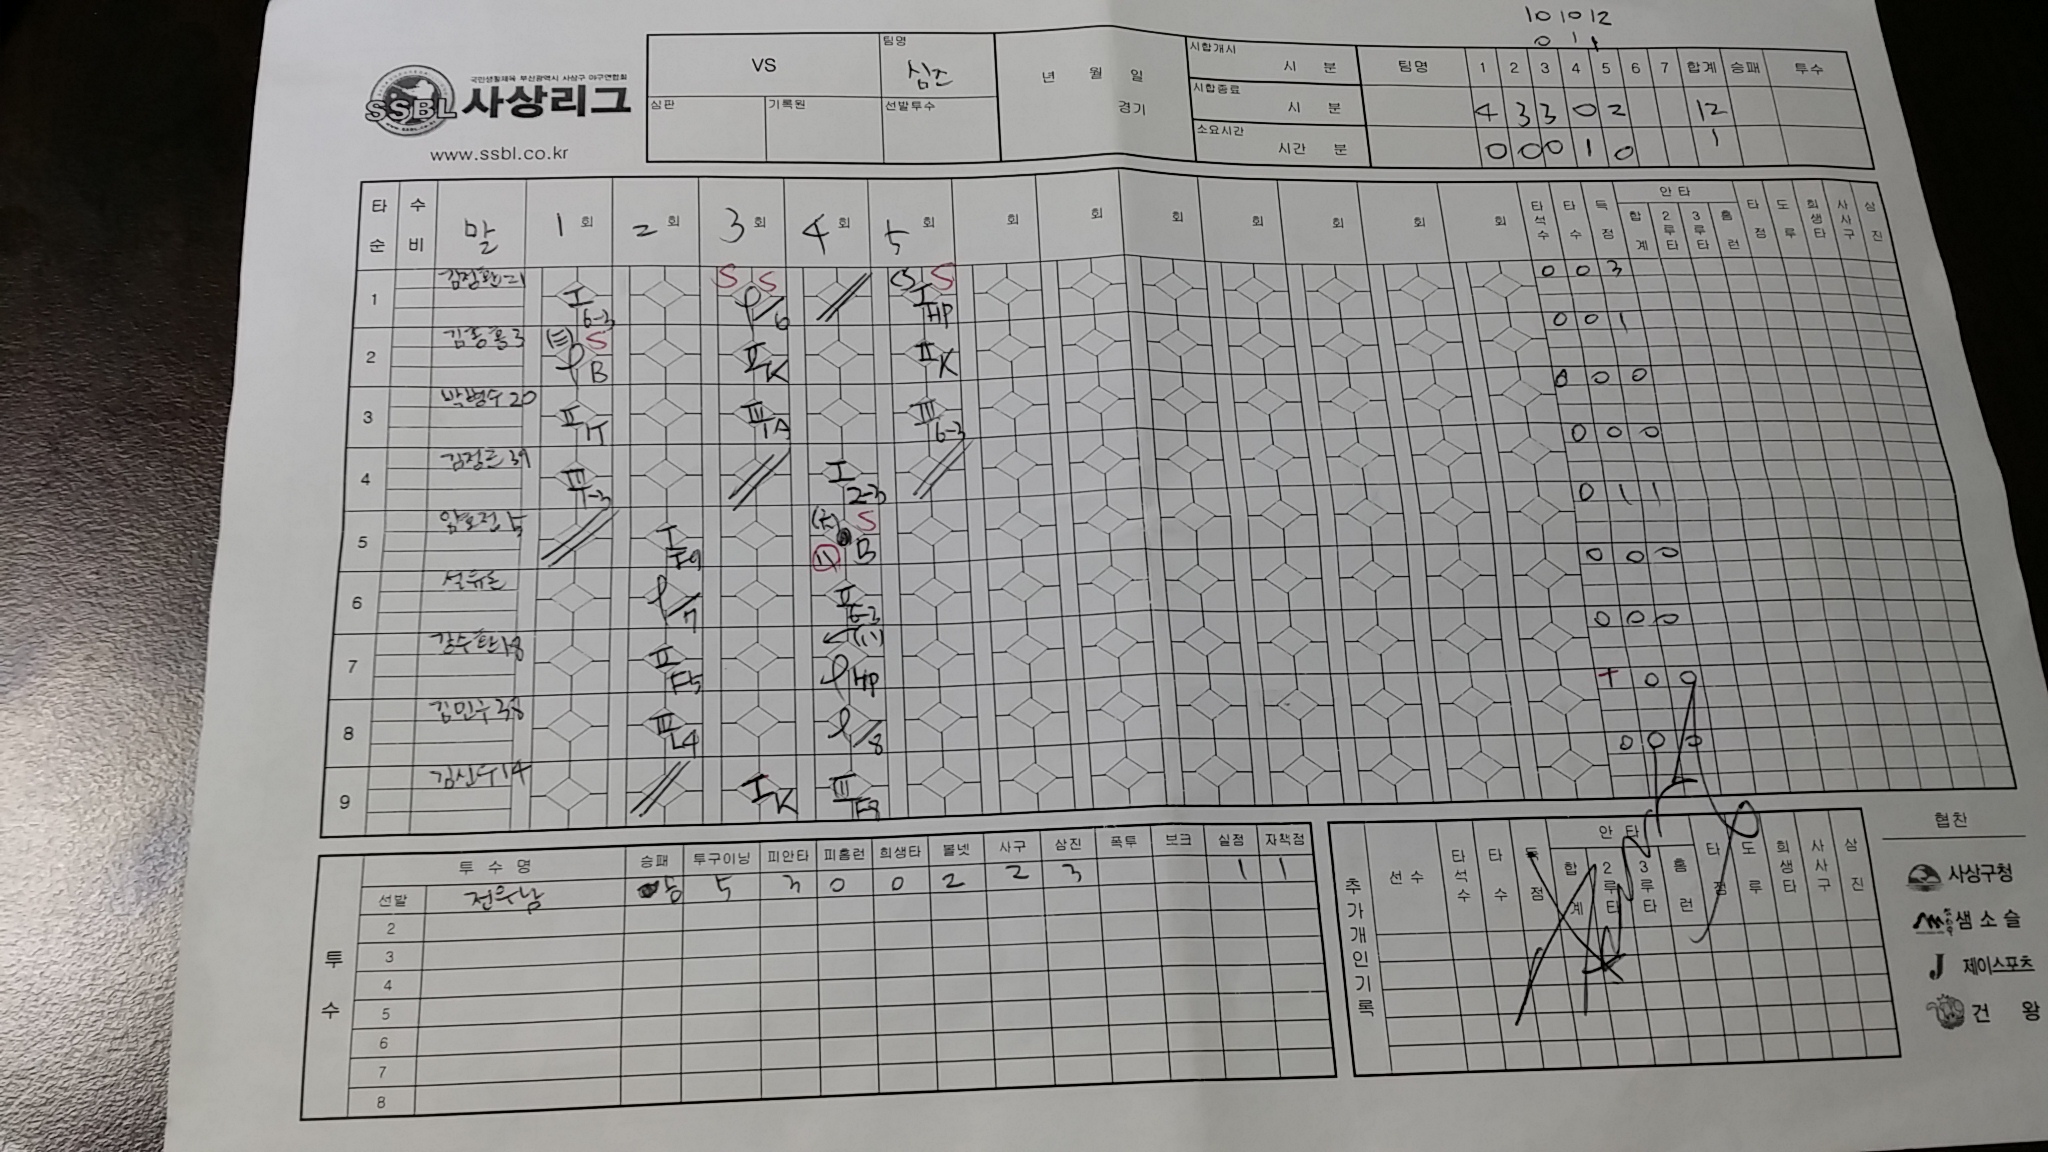 10 10 12
0 1 1
국민생활체육 부산광역시 사상구 야구연합회
SSBL 사상리그
www.ssbl.co.kr
VS
팀명
심판
기록원
선발투수
년 월 일
경기
시합개시
시 분
시합종료
시 분
소요시간
시간 분
팀명 1 2 3 4 5 6 7 합계 승패 투수
4 3 3 0 2 12
0 0 0 1 0 1
타순 수비 말 1회 2회 3회 4회 5회 회 회 회 회 회 회 회
타석수 타수 득점 안타 합계 2루타 3루타 홈런 타점 도루 희생타 사사구 삼진
1 I 6-3 S S 6 S I HP 0 0 3
2 S B II K II K 0 0 1
3 박병수 20 II 1T III 1A III 6-3 0 0 0
4 III I 2-3 0 0 0
5 I F9 S B 0 1 1
6 7 II 6-3 0 0 0
7 18 II F5 HP 0 0 0
8 38 III L4 8 0 0
9 14 I K III 0 0 0
투수
투수명 승패 투구이닝 피안타 피홈런 희생타 볼넷 사구 삼진 폭투 보크 실점 자책점
선발 5 3 0 0 2 2 3 1 1
2
3
4
5
6
7
8
추가개인기록
선수 타석수 타수 득점 안타 합계 2루타 3루타 홈런 타점 도루 희생타 사사구 삼진
협찬
사상구청
샘소슬
J 제이스포츠
건왕